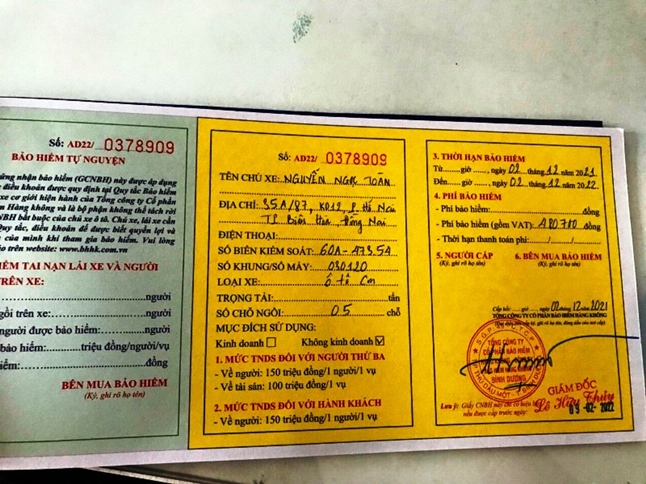 Số: AD22/ 0378909
BẢO HIỂM TỰ NGUYỆN
ứng nhận bảo hiểm (GCNBH) này được áp dụng
điều khoản được quy định tại Quy tắc Bảo hiểm
xe cơ giới hiện hành của Tổng công ty Cổ phần
Hàng không và là bộ phận không thể tách rời
NBH bắt buộc của chủ xe ô tô. Chủ xe, lái xe cần
Quy tắc, điều khoản để được biết quyền lợi và
của mình khi tham gia bảo hiểm. Vui lòng
trên website: www.bhhk.com.vn
IỂM TAI NẠN LÁI XE VÀ NGƯỜI
TRÊN XE:
người
gồi trên xe: người
người được bảo hiểm: người
bảo hiểm: triệu đồng/người/vụ
iểm: đồng
BÊN MUA BẢO HIỂM
(Ký, ghi rõ họ tên)
Số: AD22/ 0378909
TÊN CHỦ XE: NGUYỄN NGỌC TOÀN
ĐỊA CHỈ: 35A/87, KO12, P. Hố Nai
TP Biên Hòa, Đồng Nai
ĐIỆN THOẠI:
SỐ BIỂN KIỂM SOÁT: 60A - 473.54
SỐ KHUNG/SỐ MÁY: 030120
LOẠI XE: Ô tô Con
TRỌNG TẢI: tấn
SỐ CHỖ NGỒI: 05 chỗ
MỤC ĐÍCH SỬ DỤNG:
Kinh doanh Không kinh doanh
1. MỨC TNDS ĐỐI VỚI NGƯỜI THỨ BA
- Về người: 150 triệu đồng/1 người/1 vụ
- Về tài sản: 100 triệu đồng/1 vụ
2. MỨC TNDS ĐỐI VỚI HÀNH KHÁCH
- Về người: 150 triệu đồng/1 người/1 vụ
3. THỜI HẠN BẢO HIỂM
Từ giờ , ngày 02 tháng 12 năm 2021
Đến giờ , ngày 02 tháng 12 năm 2022
4. PHÍ BẢO HIỂM
- Phí bảo hiểm: đồng
- Phí bảo hiểm (gồm VAT): 480700 đồng
- Thời hạn thanh toán phí: / /
5. NGƯỜI CẤP 6. BÊN MUA BẢO HIỂM
(Ký, ghi rõ họ tên) (Ký, ghi rõ họ tên)
Cấp hồi: giờ , ngày 02/12/2021
TỔNG CÔNG TY CỔ PHẦN BẢO HIỂM HÀNG KHÔNG
TỔNG CÔNG TY
CỔ PHẦN BẢO HIỂM
BÌNH DƯƠNG
GIÁM ĐỐC
Lê Hữu Thủy
09-02-2022